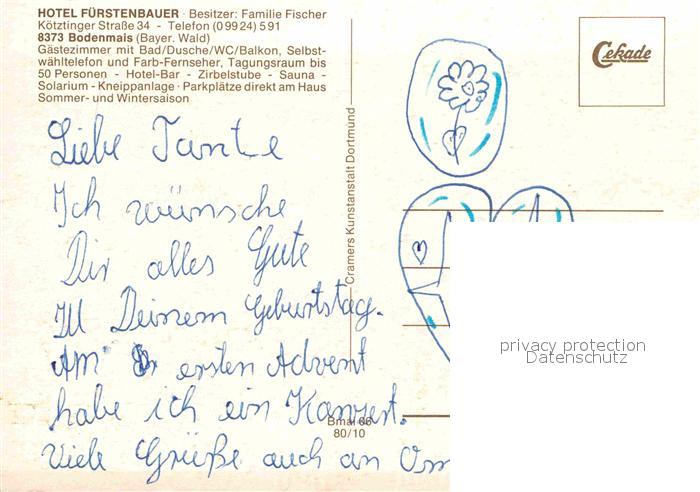 HOTEL FÜRSTENBAUER · Besitzer: Familie Fischer
Kötztinger Straße 34 - Telefon (0 99 24) 5 91
8373 Bodenmais (Bayer. Wald)
Gästezimmer mit Bad/Dusche/WC/Balkon, Selbst-
wähltelefon und Farb-Fernseher, Tagungsraum bis
50 Personen - Hotel-Bar - Zirbelstube - Sauna -
Solarium - Kneippanlage · Parkplätze direkt am Haus
Sommer- und Wintersaison
Cekade
Cramers Kunstanstalt Dortmund
Liebe Tante
Ich wünsche
Dir alles Gute
zu Deinem Geburtstag.
Am ersten Advent
habe ich ein Konzert.
Viele Grüße auch an
Bmai 66
80/10
privacy protection
Datenschutz